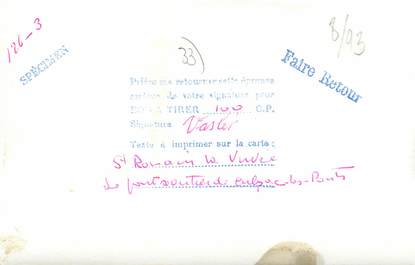 126-3
SPÉCIMEN
33)
8/93
Faire Retour
Prière me retourner cette épreuve
revêtue de votre signature pour
BON A TIRER 100 C.P.
Signature
Texte à imprimer sur la carte:
St Romain la Virvée
Le pont routier de Cubzac-les-Ponts